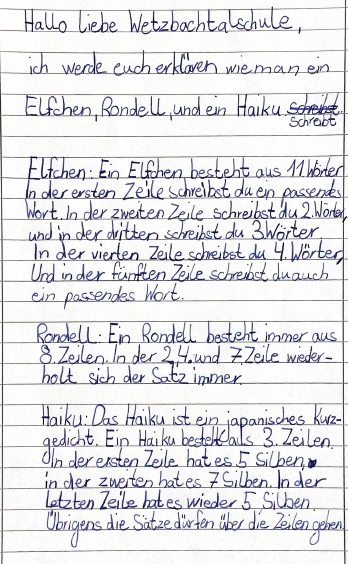 Hallo liebe Wetzbachtalschule,
ich werde euch erklären wie man ein
Elfchen, Rondell, und ein Haiku schreibt
schreibt
Elfchen: Ein Elfchen besteht aus 11 Wörter
In der ersten Zeile schreibst du ein passendes
Wort. In der zweiten Zeile schreibst du 2. Wörter,
und in der dritten schreibst du 3 Wörter
In der vierten Zeile schreibst du 4. Wörter,
Und in der fünften Zeile schreibst du auch
ein passendes Wort.
Rondell: Ein Rondell besteht immer aus
8. Zeilen. In der 2,4. und 7 Zeile wieder-
holt sich der Satz immer.
Haiku: Das Haiku ist ein japanisches Kurz-
gedicht. Ein Haiku besteht aus 3. Zeilen.
In der ersten Zeile hat es 5 Silben,
in der zweiten hat es 7 Silben. In der
letzten Zeile hat es wieder 5 Silben.
Übrigens die Sätze dürfen über die Zeilen gehen.